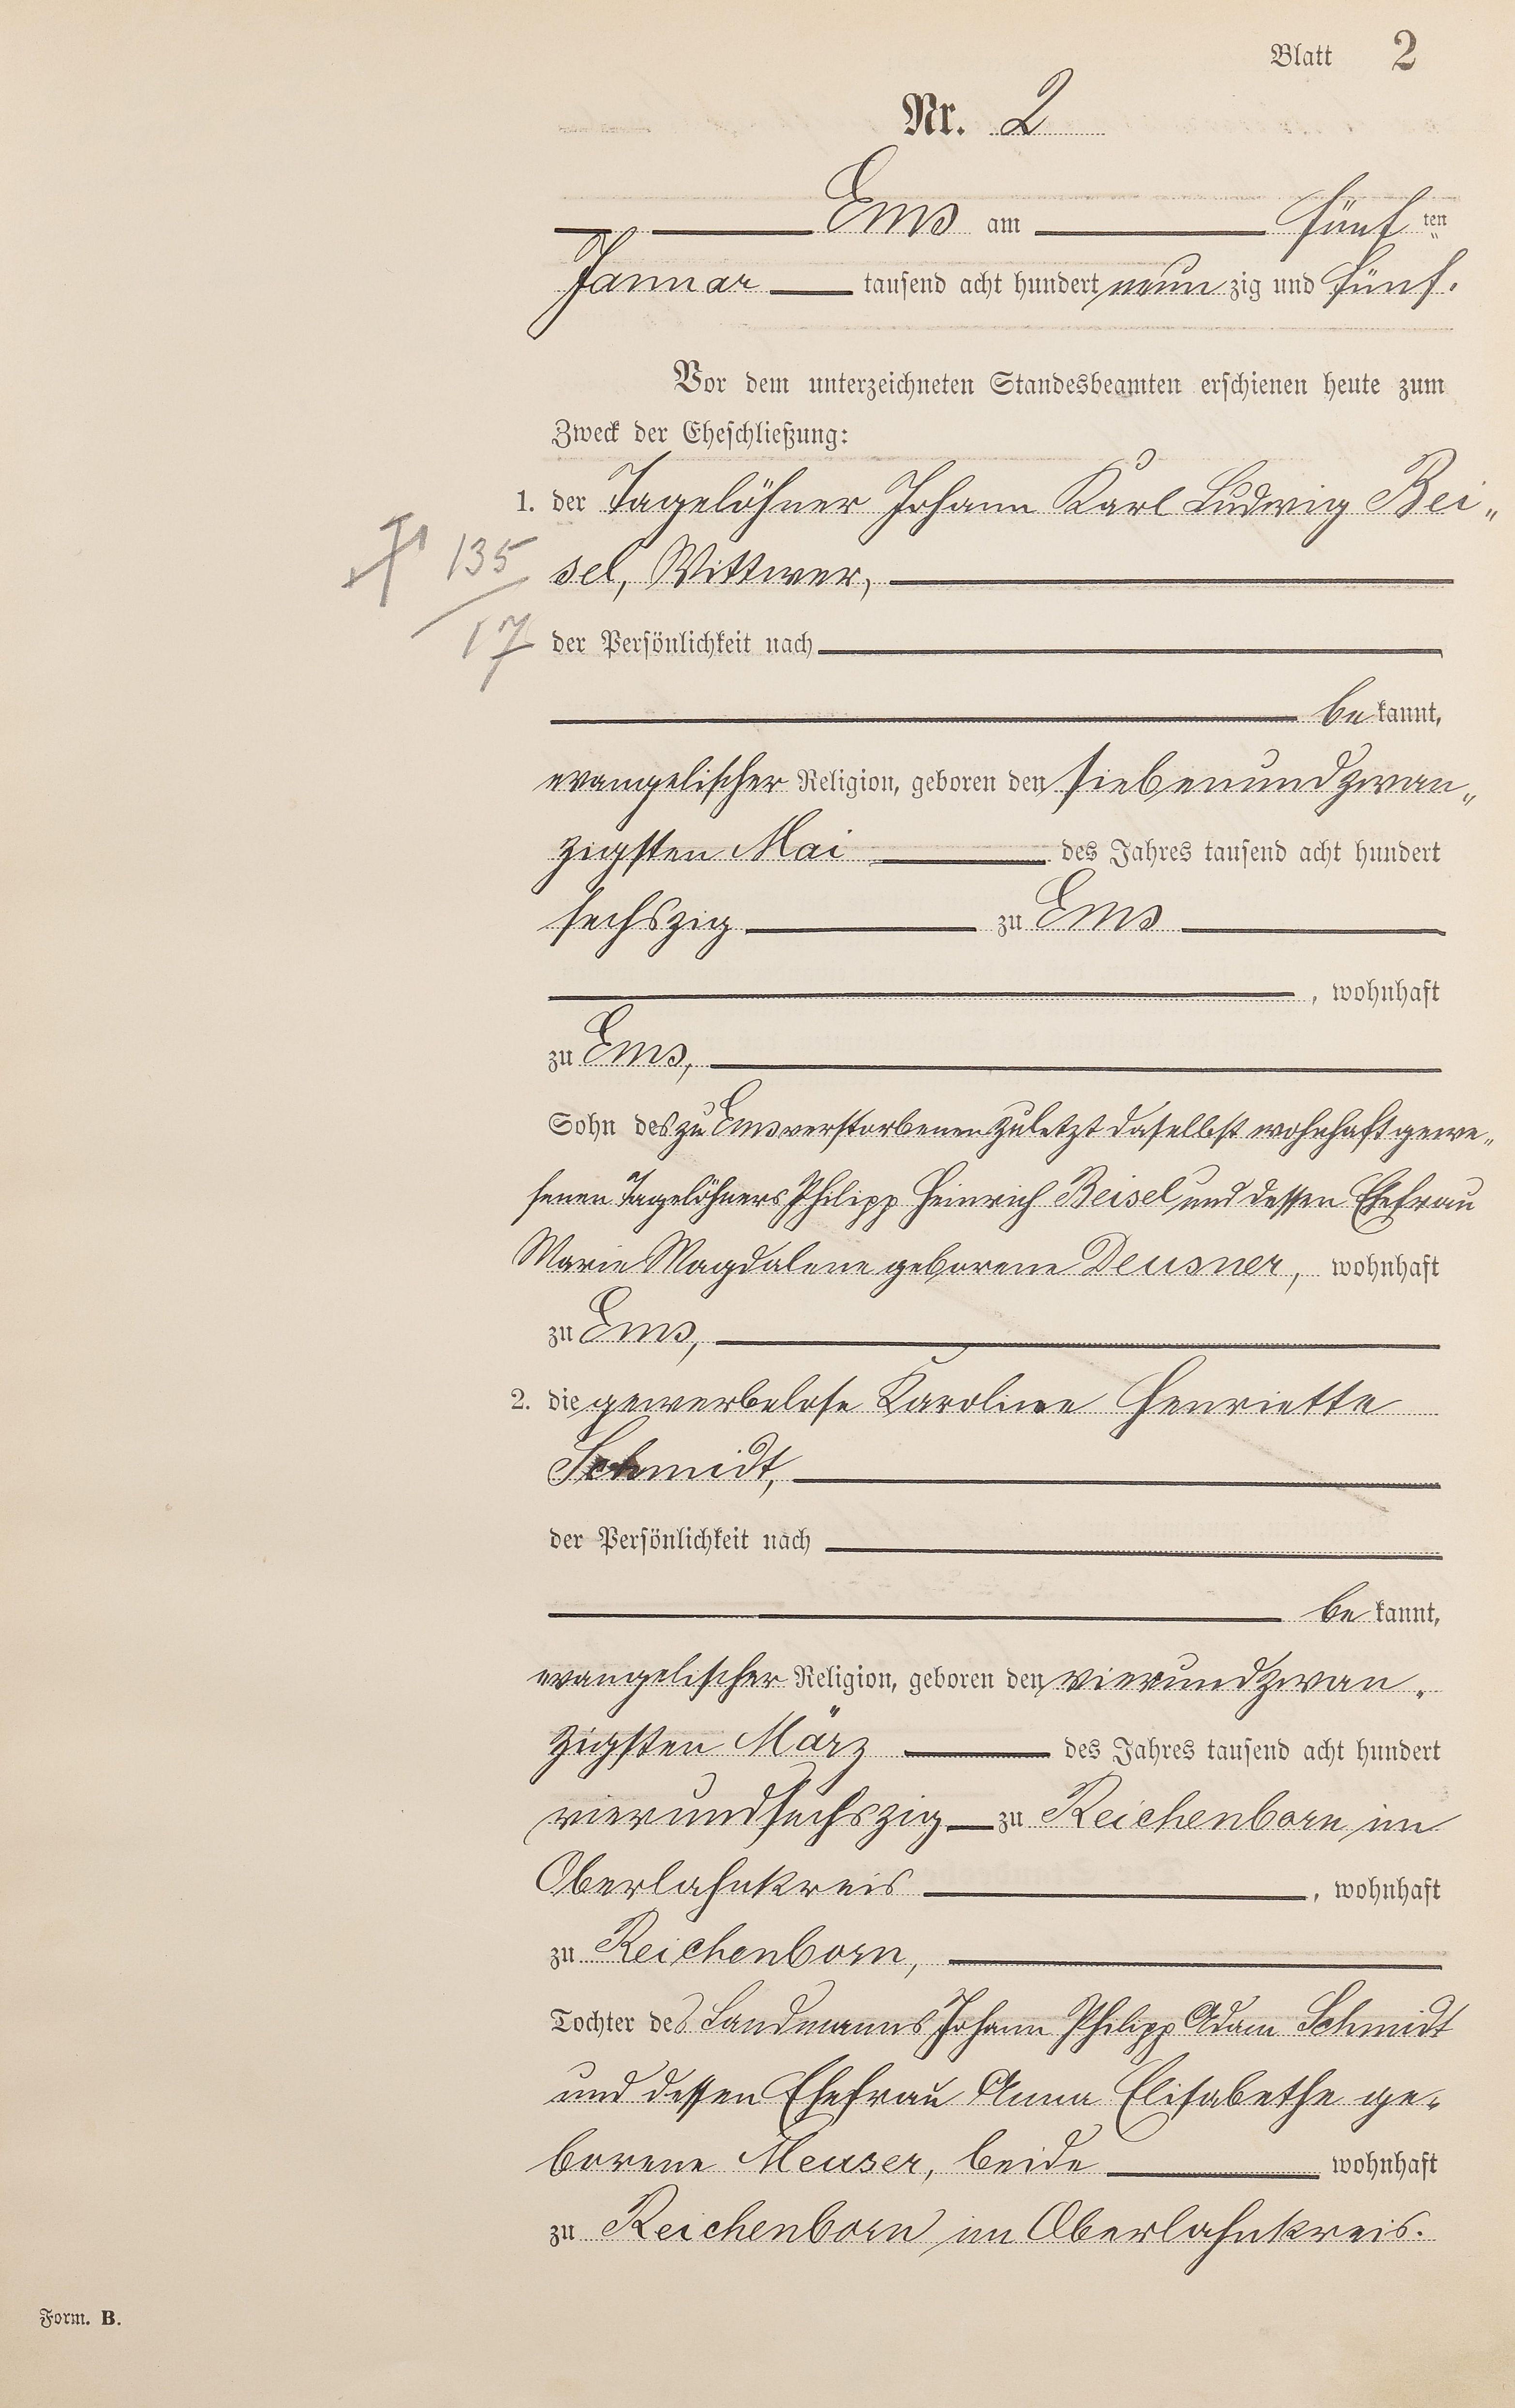 Blatt 2
Nr. 2
Ems am fünf ten
Januar tausend acht hundert neun zig und fünf.
Vor dem unterzeichneten Standesbeamten erschienen heute zum
Zweck der Eheschließung:
1. der Tagelöhner Johann Karl Ludwig Bei„
sel, Wittwer,
† 135
17
der Persönlichkeit nach
be kannt,
evangelischer Religion, geboren den siebenundzwan„
zigsten Mai des Jahres tausend acht hundert
sechszig zu Ems
, wohnhaft
zu Ems,
Sohn des zu Ems verstorbenen zuletzt daselbst wohnhaft gewe„
senen Tagelöhners Philipp Heinrich Beisel und dessen Ehefrau
Marie Magdalene geborene Deusner, wohnhaft
zu Ems,
2. die gewerbelose Karoline Henriette
Schmidt,
der Persönlichkeit nach
be kannt,
evangelischer Religion, geboren den vierundzwan„
zigsten März des Jahres tausend acht hundert
vierundsechszig zu Reichenborn im
Oberlahnkreis , wohnhaft
zu Reichenborn,
Tochter des Landmanns Johann Philipp Adam Schmidt
und dessen Ehefrau Anna Elisabethe ge„
borene Meuser, beide wohnhaft
zu Reichenborn im Oberlahnkreis.
Form. B.